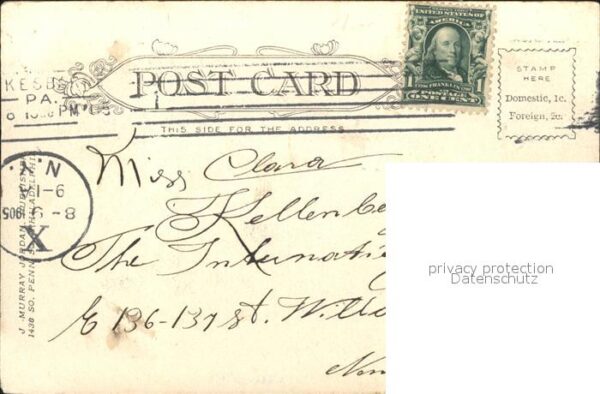 UNITED STATES OF AMERICA
POST CARD
STAMP
HERE
Domestic, 1c.
Foreign, 2c.
PA.
PM
1 FRANKLIN 1
POSTAGE
ONE CENT
THIS SIDE FOR THE ADDRESS
N.Y.
9-1
8-9 1905
X
J. MURRAY JORDAN, PUBLISHER
1438 SO. PENN SQ. PHILADELPHIA
Miss Clara
Kellenbe
The Internati
E 136-137 st. Willo
New
privacy protection
Datenschutz